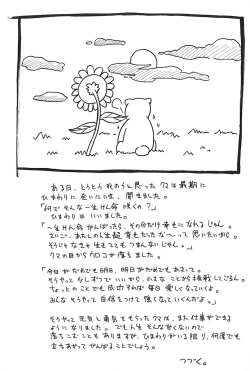 ある日、とうとう死のうと思ったクマは最期に
ひまわりに会いにいき、聞きました。
「何でそんな一生けん命咲くの？」
ひまわりはいいました。
「一生けん命がんばったら、その分だけ幸せになれるじゃん。
たしの人生超幸せだったな〜って思いたいから。
そうじゃなきゃ生きててもつまんないじゃん。」
クマの目からウロコが落ちました。
「今日がだめでも明日、明日がだめでもあさって。
そうやって少しずつでいいから、小さなことから挑戦してごらん。
ちょっとのことでも成功すれば毎日楽しくなっていくよ。
みんなそうやって自信をつけて強くなっていくんだよ。」
そうやって元気と勇気をもらったクマは、また仕事ができる
ようになりました。でも人生そんな甘くないので
落ちこむこともありますが、ひまわりがいる限り、何度でも
立ちあがってがんばることでしょう。
つづく。